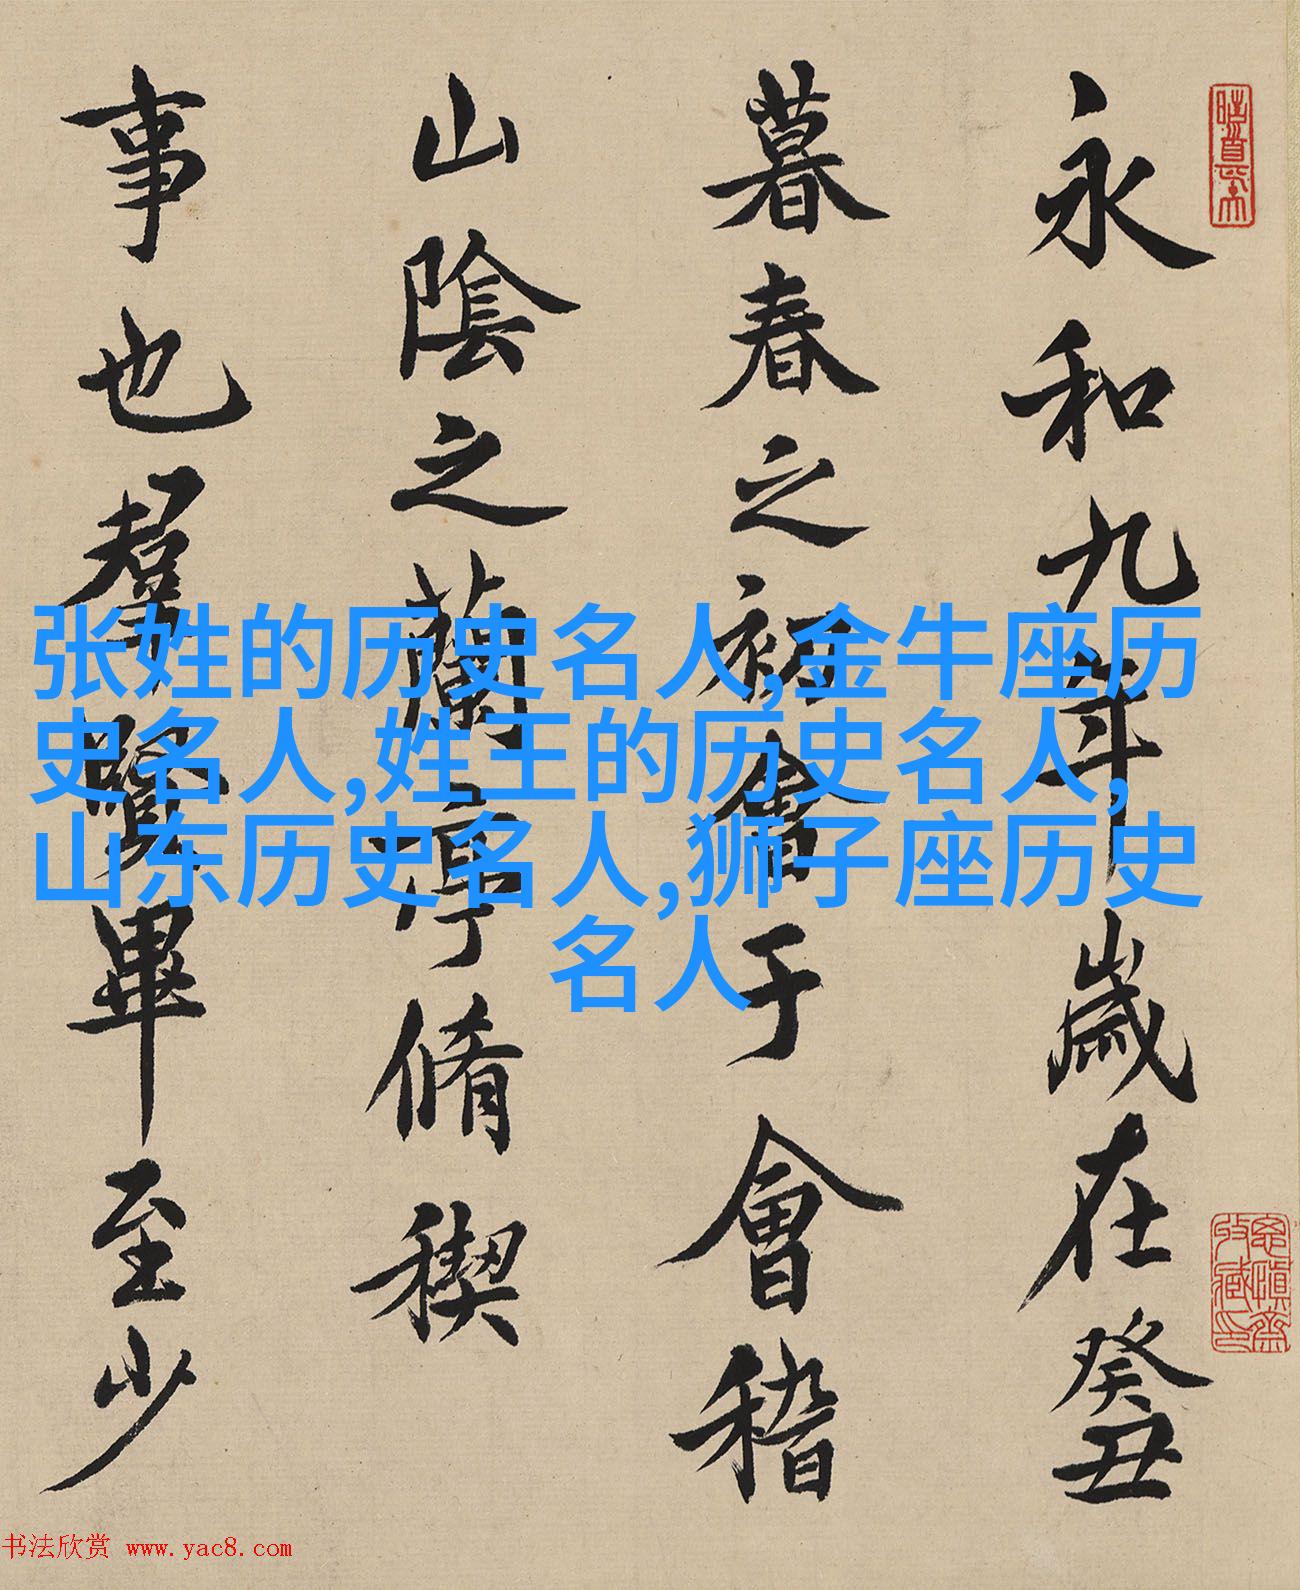 永和九年歲在癸丑
暮春之初會于會稽
山陰之蘭亭脩稧
事也羣賢畢至少
张姓的历史名人,金牛座历
史名人,姓王的历史名人,
山东历史名人,狮子座历史
名人
书法欣赏 www.yac8.com